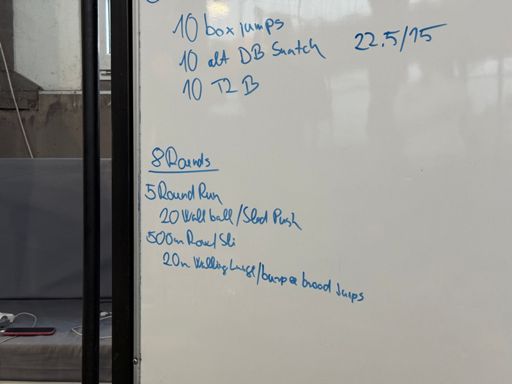 10 box jumps
10 alt DB Snatch 22.5/15
10 T2B
8 Rounds
5 Round Run
20 Wall ball/Sled Push
500m Row/Ski
20m Walking Lunge/burpee broad jumps